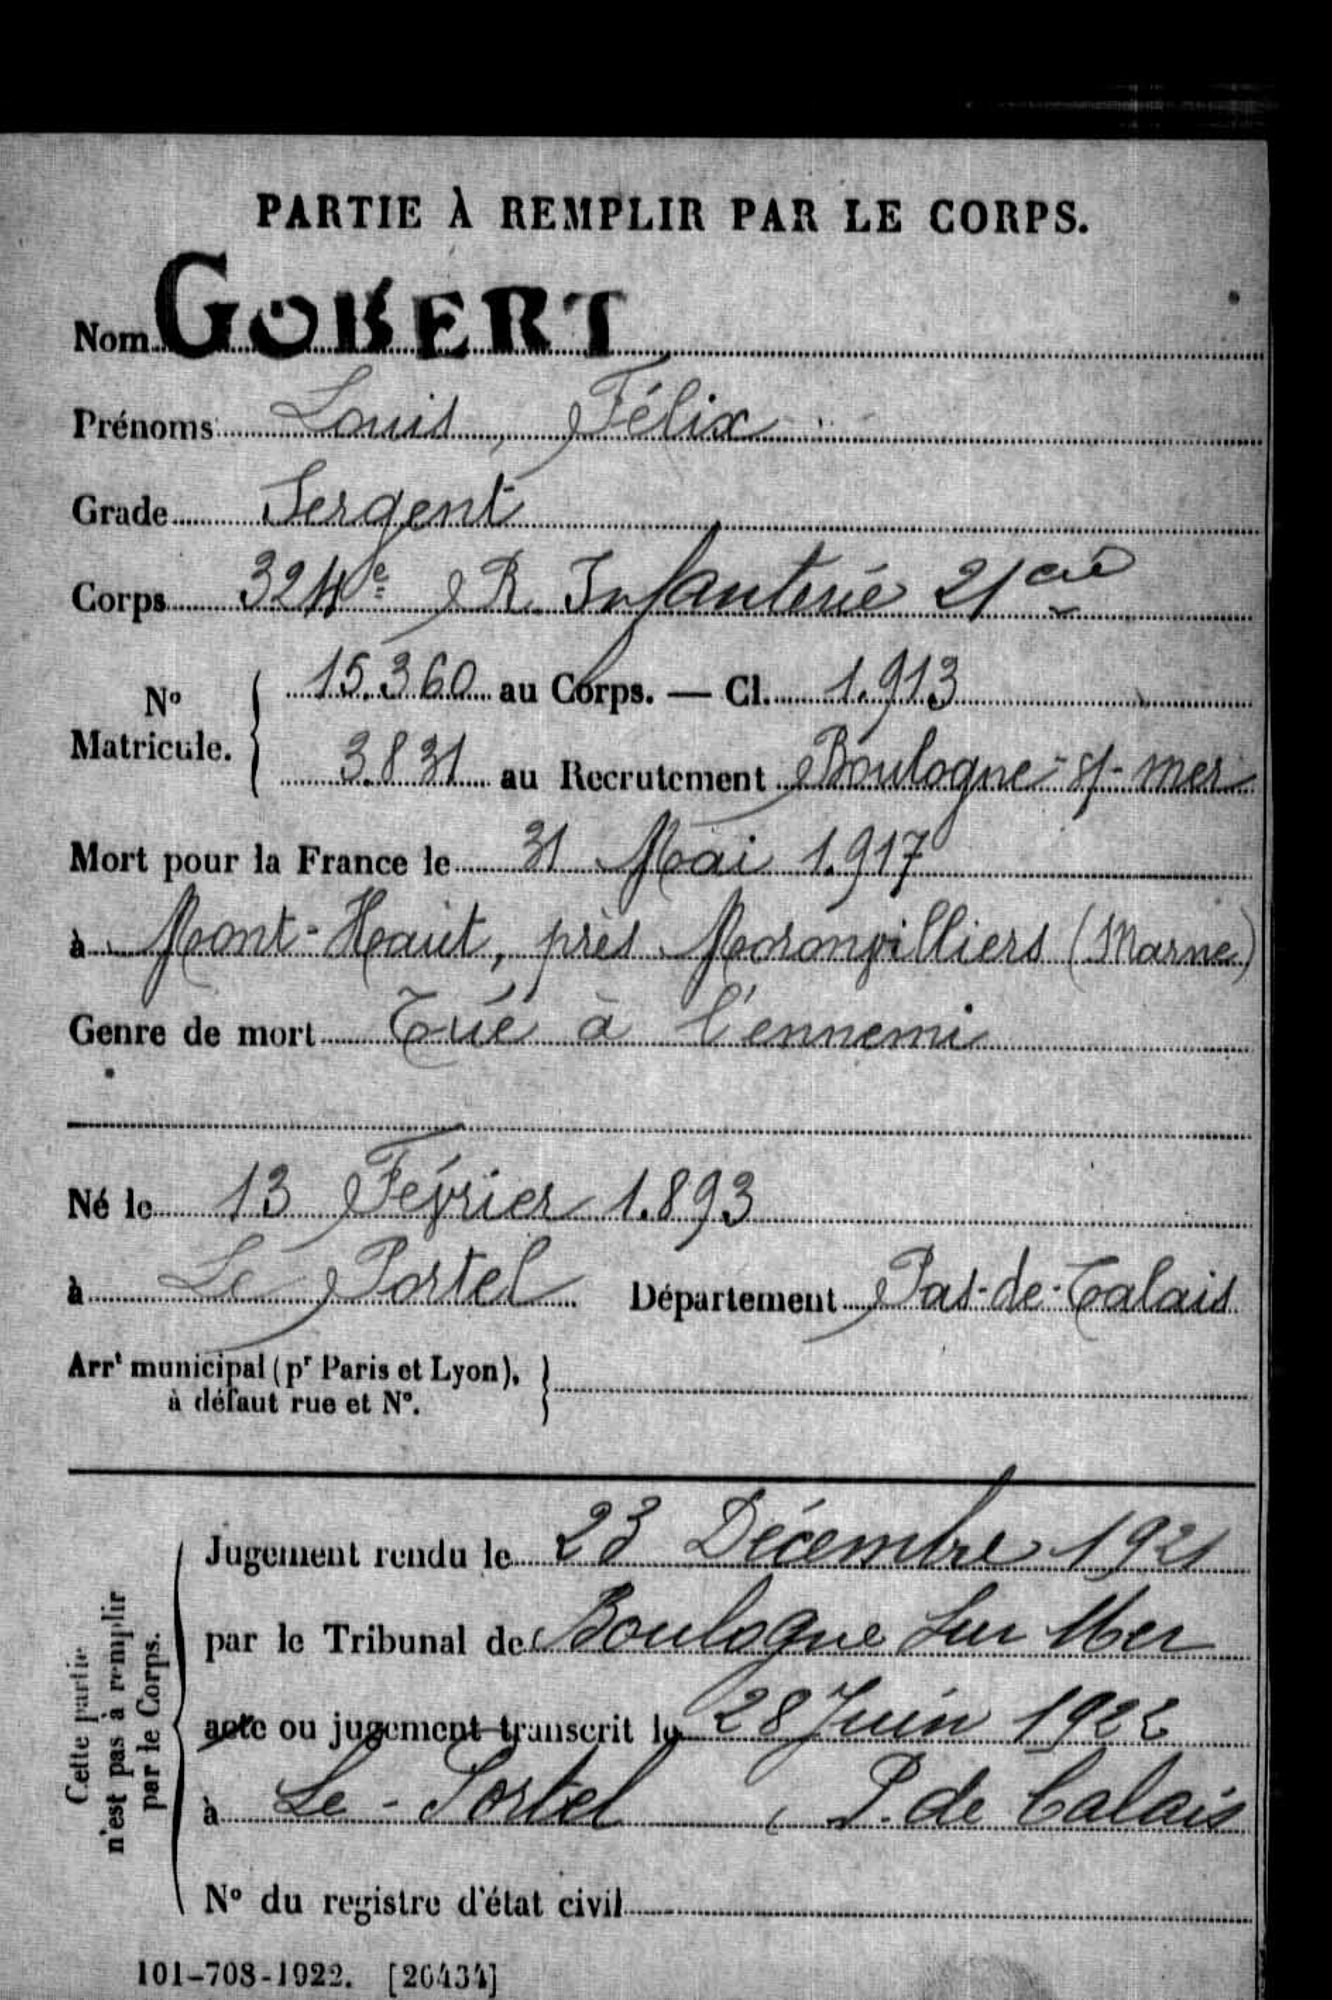 PARTIE À REMPLIR PAR LE CORPS.
Nom GOBERT
Prénoms Louis, Félix
Grade Sergent
Corps 324e R. Infanterie 21e cie
No Matricule. 15.360 au Corps. — Cl. 1.913
3.831 au Recrutement Boulogne-s/-mer
Mort pour la France le 31 Mai 1.917
à Mont-Haut, près Moronvilliers (Marne)
Genre de mort Tué à l'ennemi
Né le 13 Février 1.893
à Le Portel Département Pas-de-Calais
Arrt municipal (pr Paris et Lyon),
à défaut rue et No.
Cette partie
n'est pas à remplir
par le Corps.
Jugement rendu le 23 Décembre 1921
par le Tribunal de Boulogne sur Mer
acte ou jugement transcrit le 28 Juin 1922
à Le-Portel, P. de Calais
No du registre d'état civil
101-708-1922. [26434]